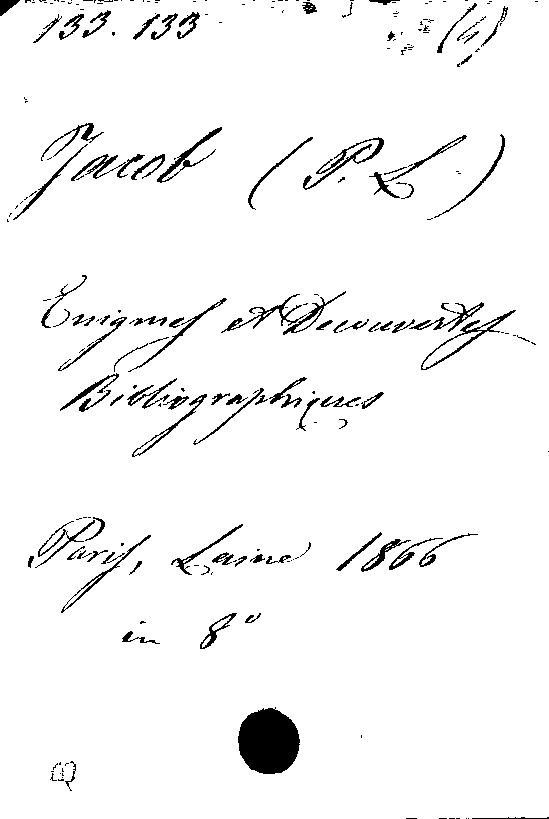 133. 133 (4)
Jacob (P. L.)
Enigmes et Decouvertes
Bibliographiques
Paris, Laine 1866
in 8º